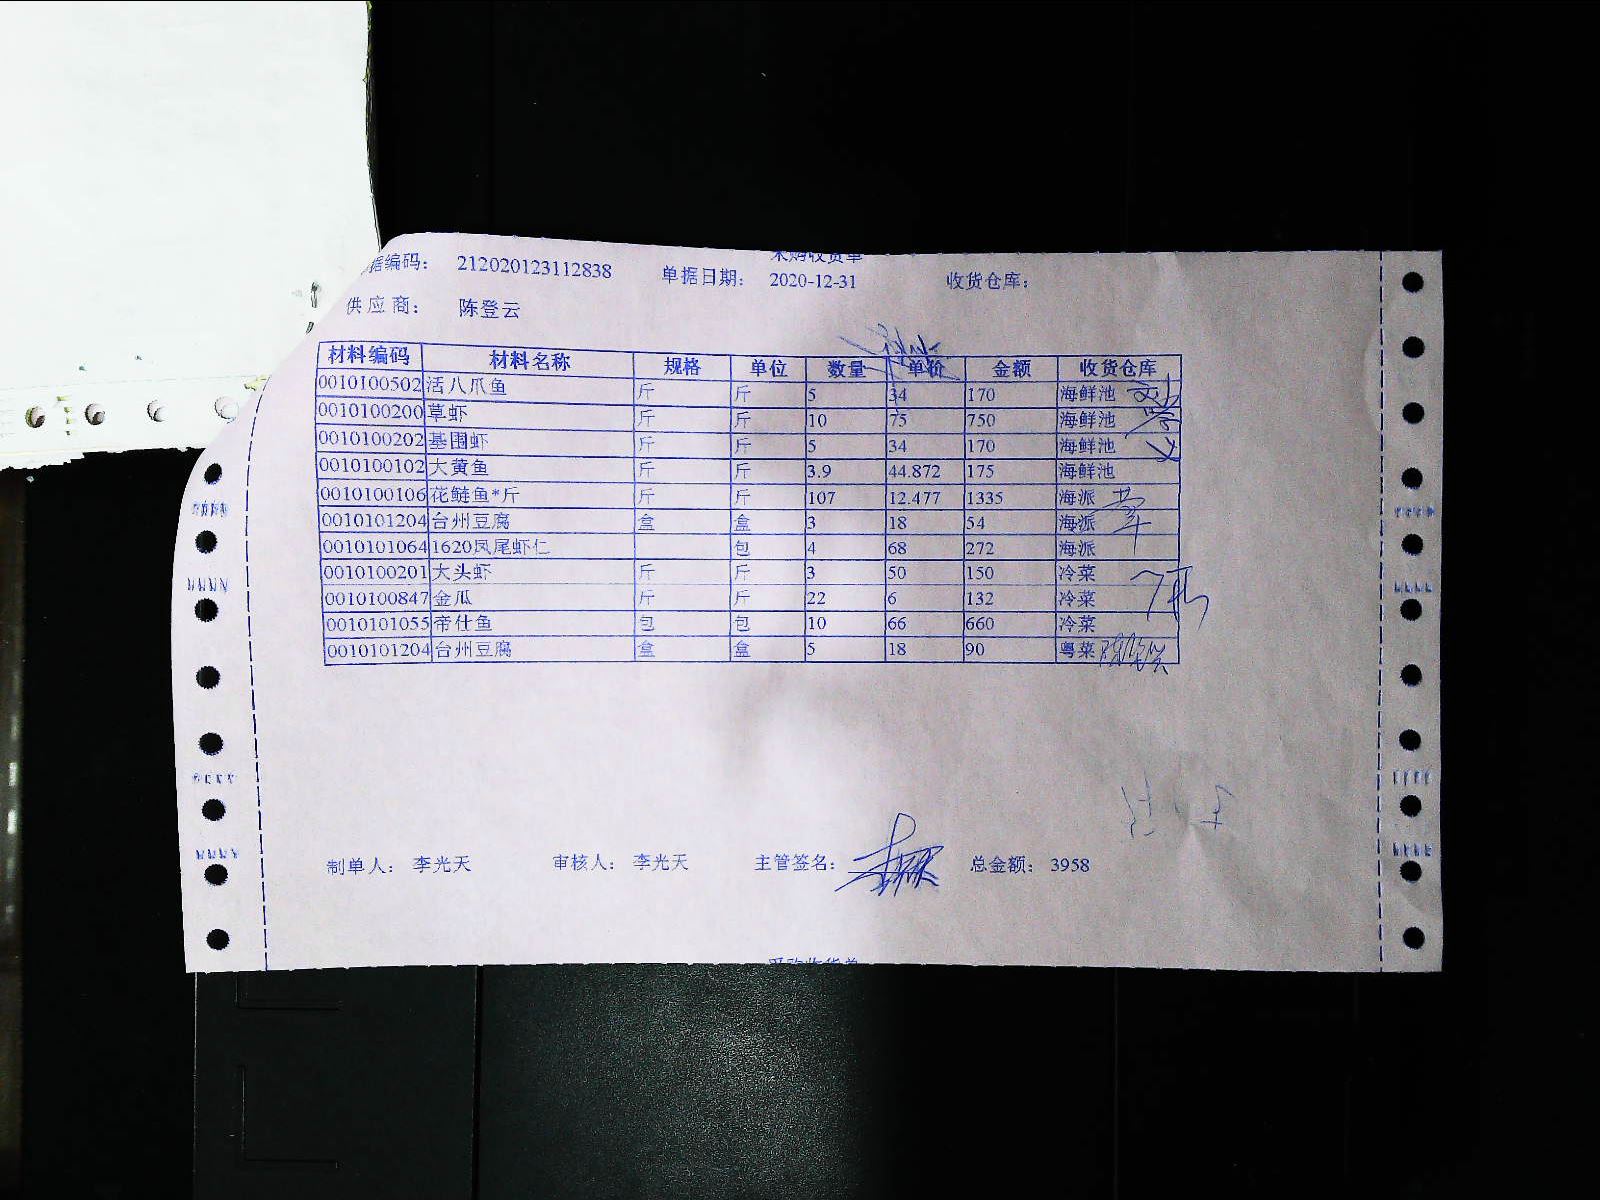 采购收货单
据编码： 212020123112838 单据日期： 2020-12-31 收货仓库：
供应商： 陈登云
材料编码 材料名称 规格 单位 数量 单价 金额 收货仓库
0010100502 活八爪鱼 斤 斤 5 34 170 海鲜池
0010100200 草虾 斤 斤 10 75 750 海鲜池
0010100202 基围虾 斤 斤 5 34 170 海鲜池
0010100102 大黄鱼 斤 斤 3.9 44.872 175 海鲜池
0010100106 花鲢鱼*斤 斤 斤 107 12.477 1335 海派
0010101204 台州豆腐 盒 盒 3 18 54 海派
0010101064 1620凤尾虾仁 包 4 68 272 海派
0010100201 大头虾 斤 斤 3 50 150 冷菜
0010100847 金瓜 斤 斤 22 6 132 冷菜
0010101055 帝仕鱼 包 包 10 66 660 冷菜
0010101204 台州豆腐 盒 盒 5 18 90 粤菜
制单人： 李光天 审核人： 李光天 主管签名： 总金额： 3958
采购收货单